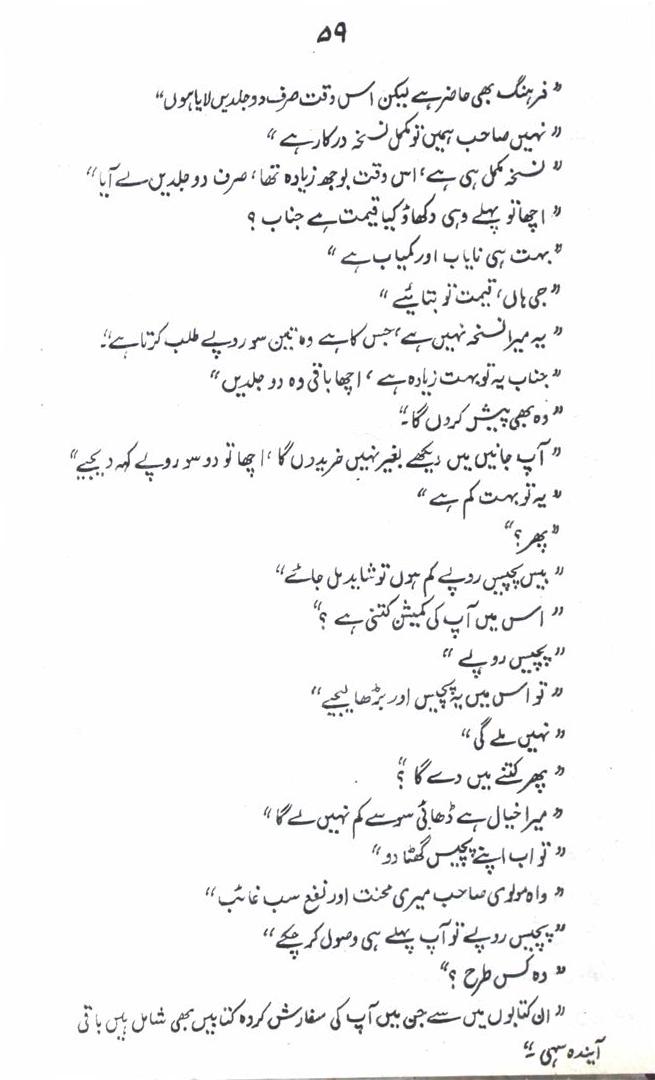 ۵۹
"فرہنگ بھی حاضر ہے لیکن اس وقت صرف دو جلدیں لایا ہوں"
"نہیں صاحب ہمیں تو مکمل نسخہ درکار ہے"
"نسخہ مکمل ہی ہے، اس وقت بوجھ زیادہ تھا، صرف دو جلدیں لے آیا"
"اچھا تو پہلے وہی دکھاؤ کیا قیمت ہے جناب ؟
"بہت ہی نایاب اور کمیاب ہے"
"جی ہاں، قیمت تو بتائیے"
"یہ میرا نسخہ نہیں ہے، جس کا ہے وہ تین سو روپے طلب کرتا ہے"۔
"جناب یہ تو بہت زیادہ ہے ، اچھا باقی وہ دو جلدیں"
"وہ بھی پیش کردں گا"۔
"آپ جانیں میں دیکھے بغیر نہیں خریدں گا ، اچھا تو دو سو روپے کہہ دیجیے"
"یہ تو بہت کم ہے"
"پھر؟"
"بیس پچیس روپے کم ہوں تو شاید مل جائے"
"اس میں آپ کی کمیشن کتنی ہے ؟"
"پچیس روپے"
"تو اس میں یہ پچیس اور بڑھا لیجیے"
"نہیں ملے گی"
"پھر کتنے میں دے گا ؟"
"میرا خیال ہے ڈھائی سو سے کم نہیں لے گا"
"تو اب اپنے پچیس گھٹا دو"
"واہ مولوی صاحب میری محنت اور نفع سب غائب"
"پچیس روپے تو آپ پہلے ہی وصول کر چکے"
"وہ کس طرح ؟"
"ان کتابوں میں سے جن میں آپ کی سفارش کردہ کتابیں بھی شامل ہیں باقی
آیندہ سہی"۔